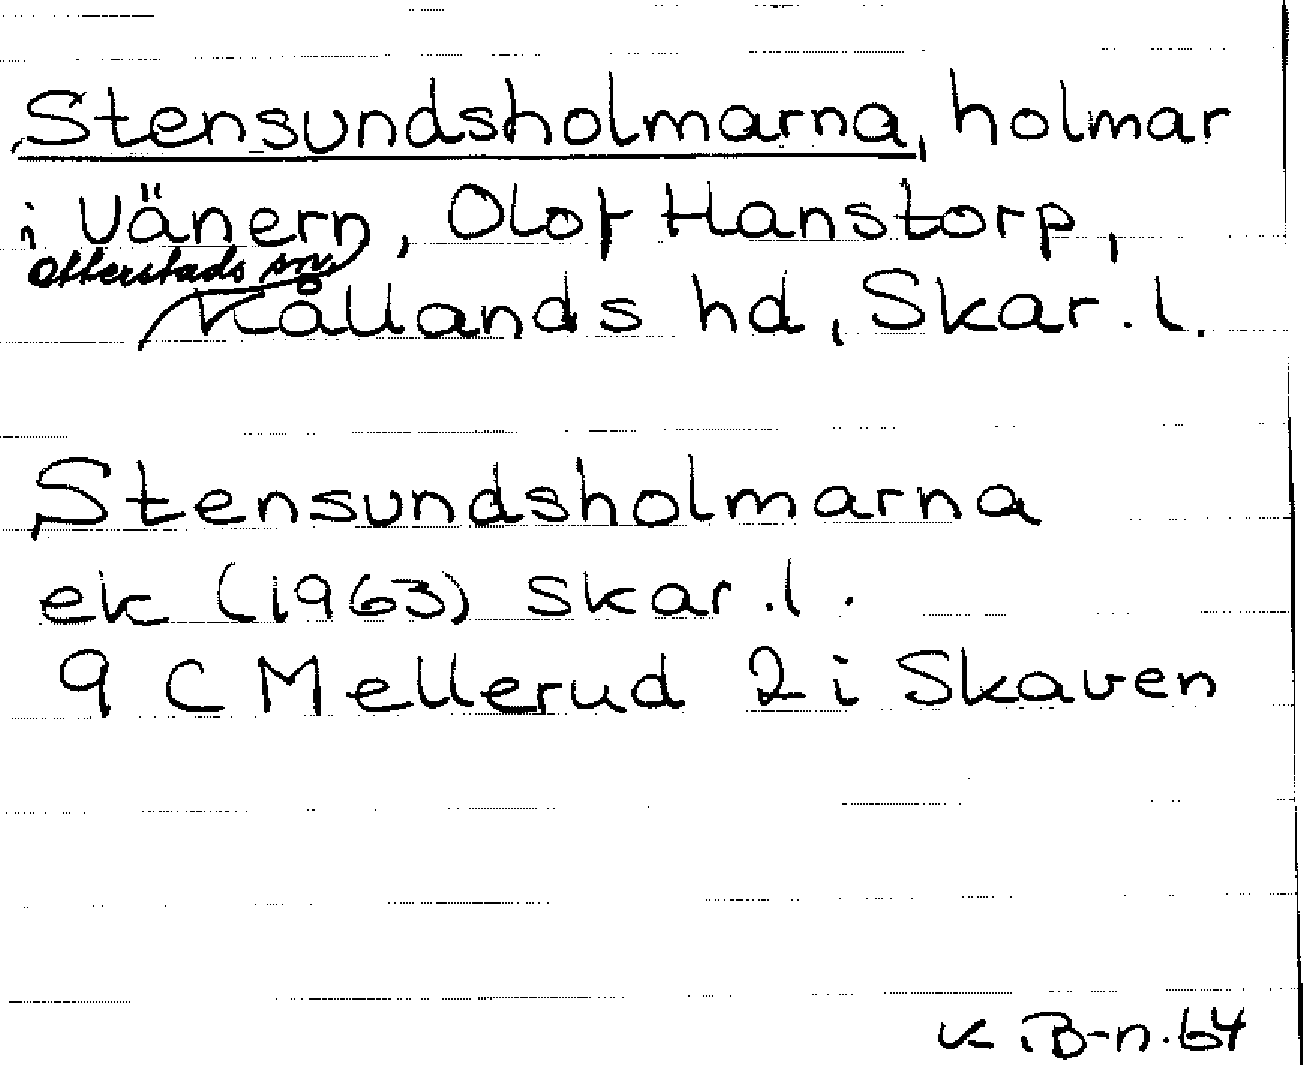 Stensundsholmarna, holmar
i Vänern, Olof Hanstorp,
Otterstads sn,
Kållands hd, Skar. l.
Stensundsholmarna
ek (1963) Skar. l.
9 C Mellerud 2 i Skaven
K B-n. 64